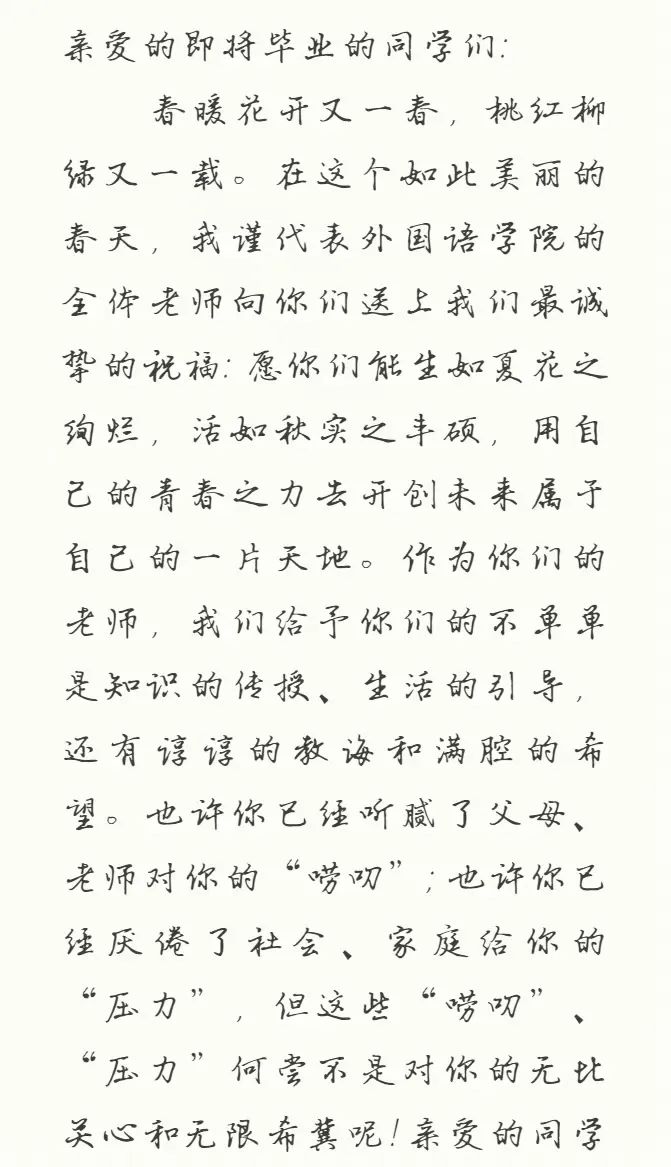 亲爱的即将毕业的同学们:
春暖花开又一春，桃红柳
绿又一载。在这个如此美丽的
春天，我谨代表外国语学院的
全体老师向你们送上我们最诚
挚的祝福:愿你们能生如夏花之
绚烂，活如秋实之丰硕，用自
己的青春之力去开创未来属于
自己的一片天地。作为你们的
老师，我们给予你们的不单单
是知识的传授、生活的引导，
还有谆谆的教诲和满腔的希
望。也许你已经听腻了父母、
老师对你的“唠叨”;也许你已
经厌倦了社会、家庭给你的
“压力”，但这些“唠叨”、
“压力”何尝不是对你的无比
关心和无限希冀呢!亲爱的同学